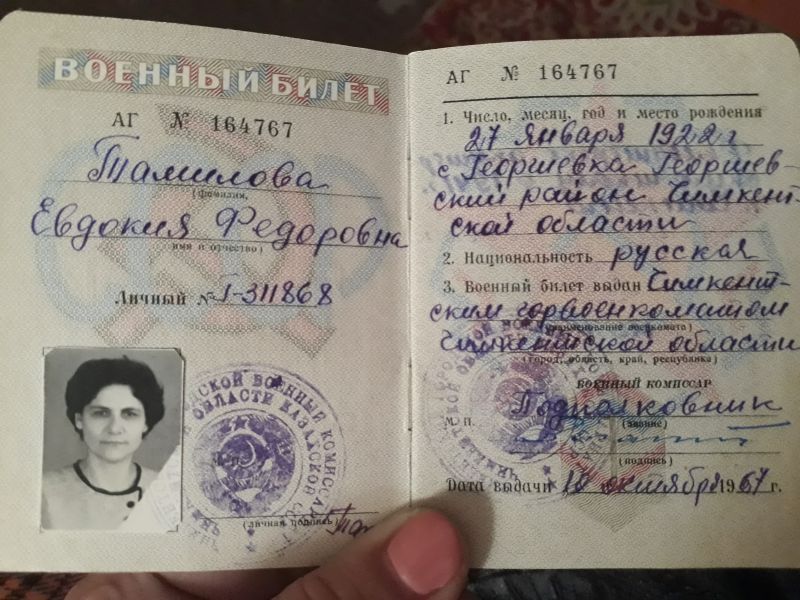 ВОЕННЫЙ БИЛЕТ
АГ № 164767
Тамилова
(фамилия,
Евдокия Федоровна
имя и отчество)
Личный № Т-311868
ОБЛАСТИ КАЗАХСКОЙ
(личная подпись)
АГ № 164767
1. Число, месяц, год и место рождения
27 Января 1922 г
с Георгиевка Георгиев-
ский район Чимкент-
ской области
2. Национальность русская
3. Военный билет выдан Чимкент-
ским горвоенкоматом
(наименование военкомата)
Чимкентской области
(город, область, край, республика)
ВОЕННЫЙ КОМИССАР
М. П. Подполковник
(звание)
(подпись)
Дата выдачи 12 октября 1967 г.